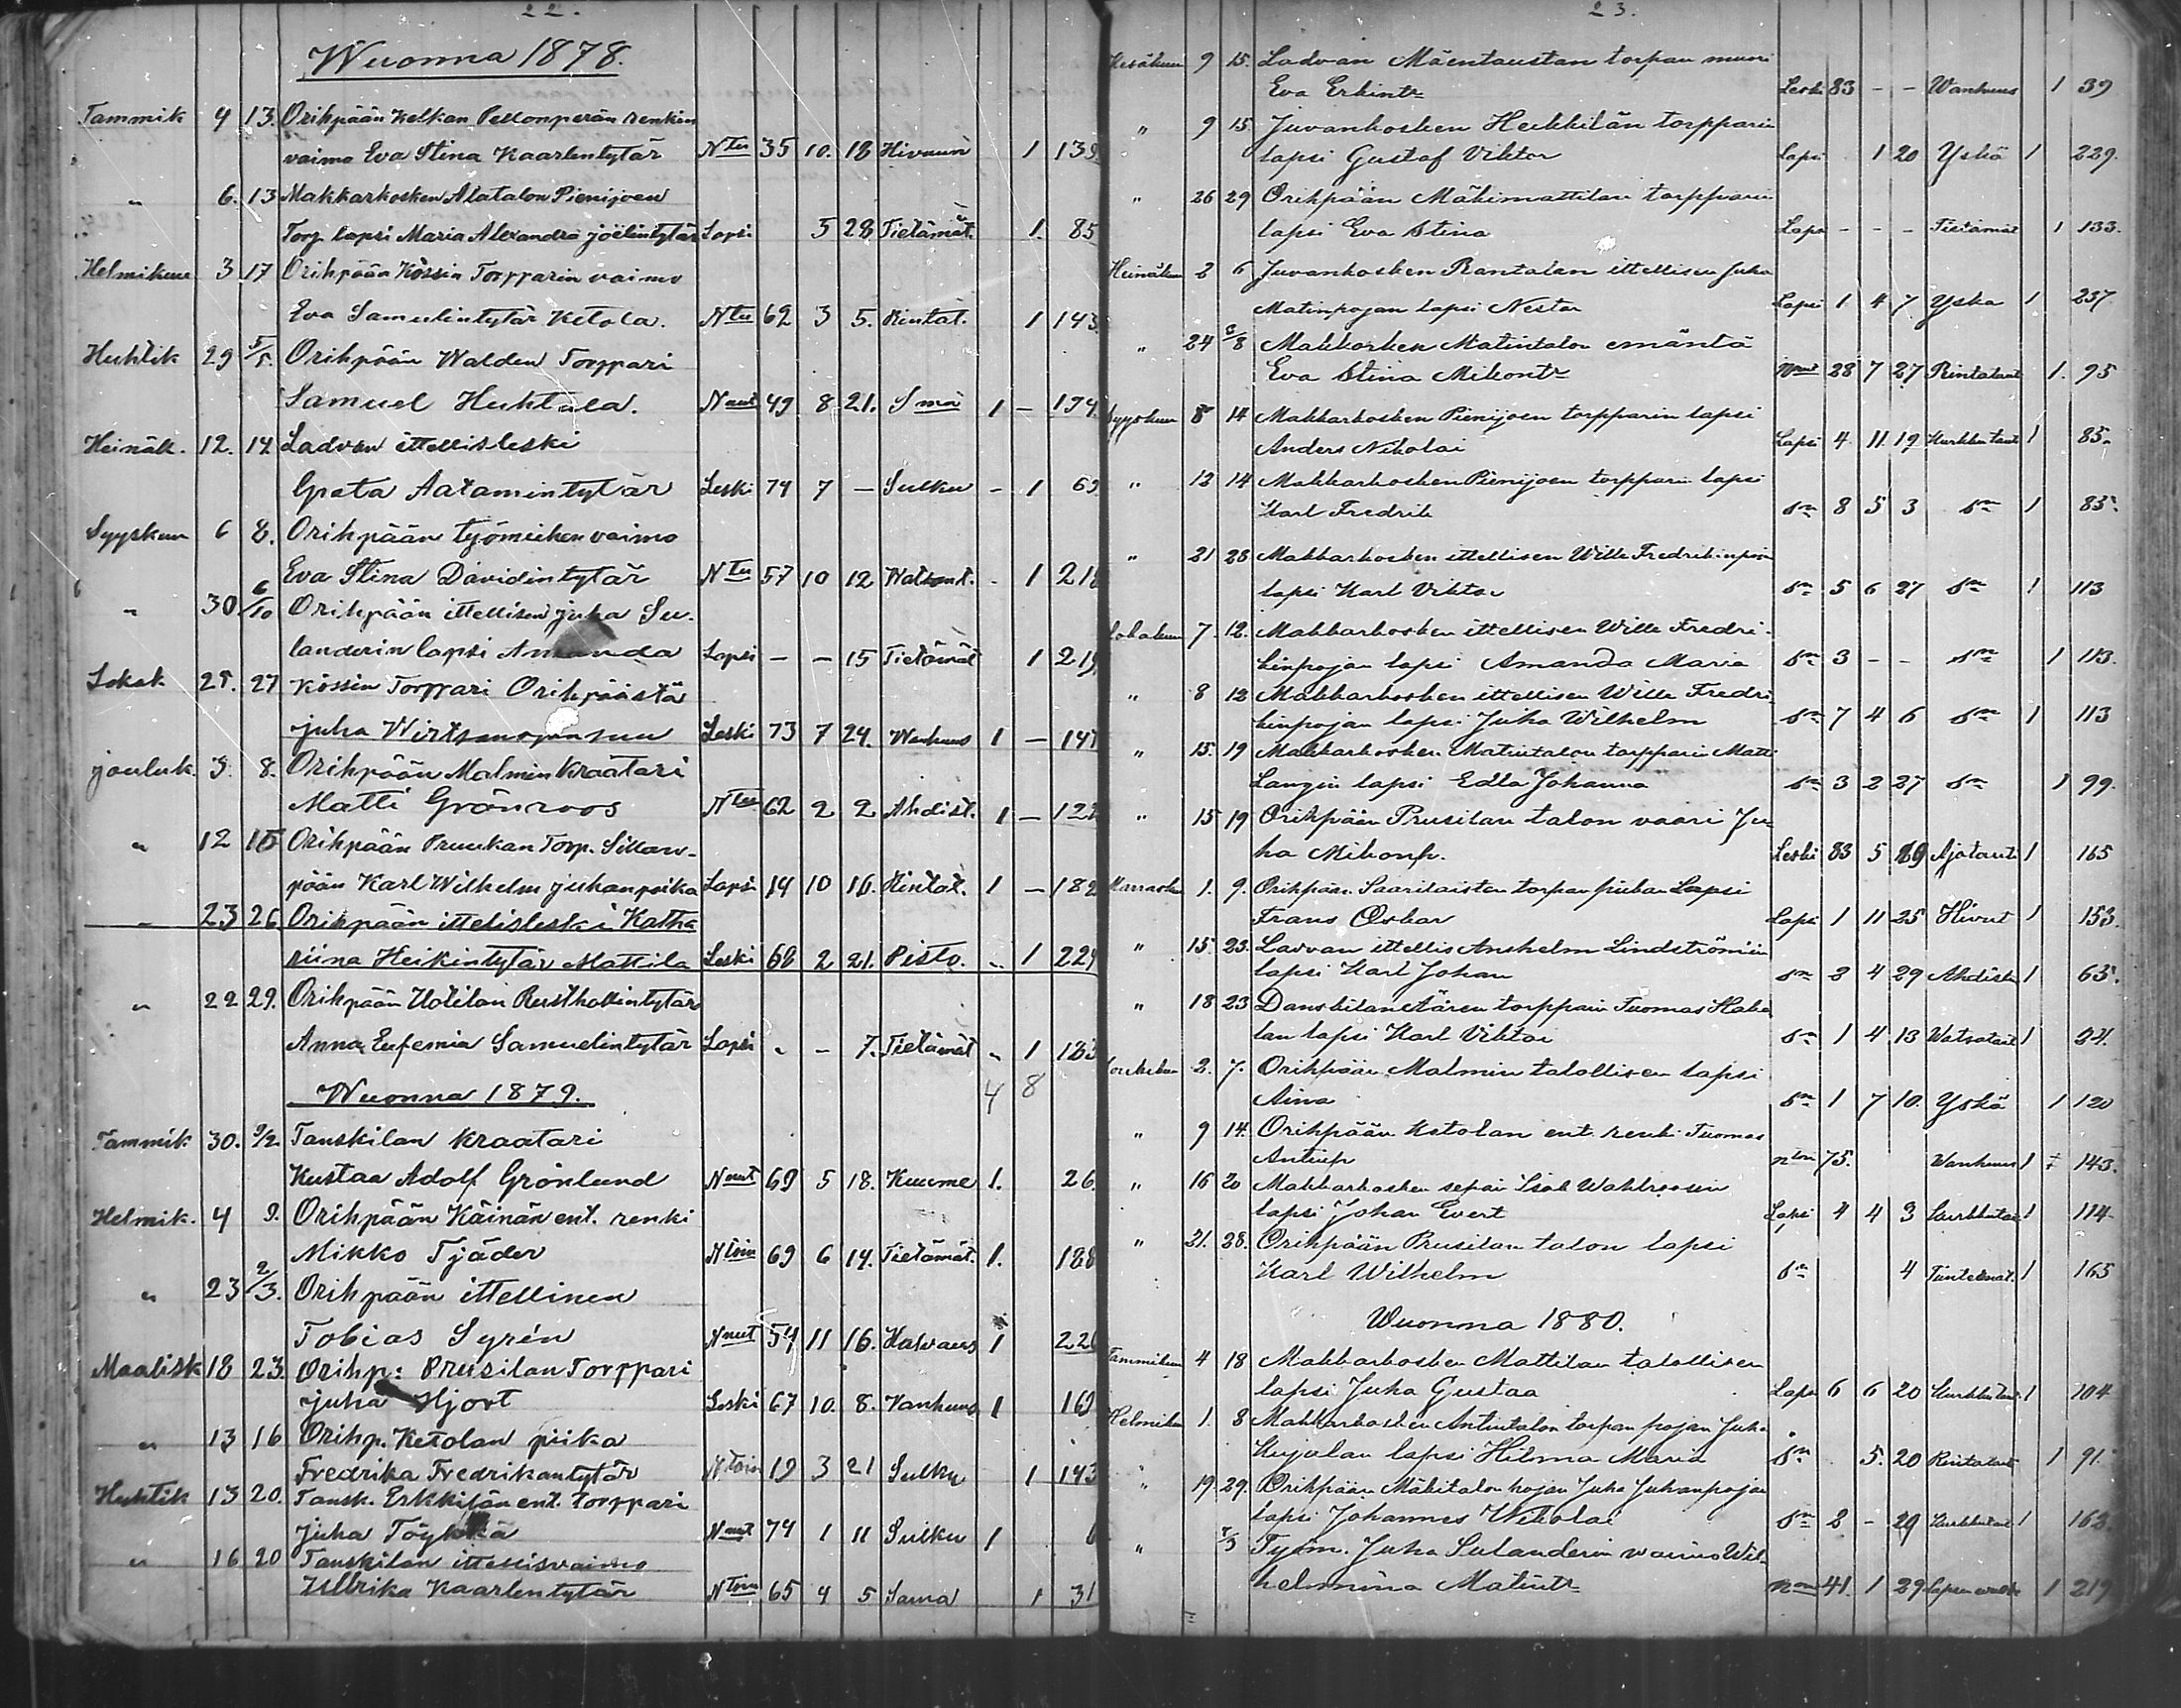 22.
Wuonna 1878.
Tammik 4 13. Orihpään Kelkan Pellonperän renkin
vaimo Eva Stina Kaarlentytär Ntu 35 10. 18 Hivuun 1 139
" 6. 13 Makkarkosken Alatalon Pienijoen
Torp lapsi Maria Alexandra joelintytär Lapsi 5 28 Tietämät. 1. 85
Helmikuu 3 17 Orihpään Kössin Torpparin vaimo
Eva Samulintytär Ketola. Ntu 62 3 5. Rintat. 1 143.
Huhtik 29 5/5. Orihpään Walden Torppari
Samuel Huhtala. Naut 49 8 21. Sma 1 – 194.
Heinäk. 12. 14 Ladvan ittellisleski
Greta Aatamintytär Leski 74 7 – Sulku – 1 69
Syyskuu 6 8. Orihpään työmiehen vaimo
Eva Stina Davidintytär Ntu 57 10 12 Watsat. - 1 218
" 30 6/10 Orihpään ittellisen juha Su-
landerin lapsi Amanda Lapsi – – 15 Tietämät 1 219
Lokak 25. 27 Kössin Torppari Orihpäästä
juha Leski 73 7 24. Wanhuus 1 – 147
jouluk. 3. 8. Orihpään Malmin Kräätari
Matti Grönroos Ntu 62 2 2 Ahdist. 1 – 122
" 12 15 Orihpään Pruukan Torp. Sillan-
pään Karl Wilhelm juhanpoika Lapsi 14 10 16. Rintat. 1 – 182
" 23 26 Orihpään ittelisleski Katha
riina Heikintytär Mattila Leski 68 2 21. Pisto. .. 1 224
" 22 29. Orihpään Uotilan Rusthollintytär
Anna Eufemia Samuelintytär Lapsi - – 7. Tietämät „ 1 183
4 8
Wuonna 1879.
Tammik 30. 9/2. Tanskilan Kraatari
Kustaa Adolf Grönlund Naut 69 5 18. Kuume 1. 26.
Helmik. 4 9. Orihpään Käinän ent. renki
Mikko Tjäder Ntoin 69 6 14. Tietämät. 1. 188
" 23 2/3. Orihpään ittellinen
Tobias Syrén Naut 54 11 16. Halvaus 1 226
Maalisk 18 23. Orihp: Prusilan Torppari
juha Hjort Leski 67 10. 8. Vanhuus 1 169
" 13 16 Orihp. Ketolan piika
Fredrika Fredrikantytär Ntoin 19 3 21 Sulku 1 143
Huhtik 13 20. Tansk. Erkkilän ent. torppari
Juha Töykkä Naut 74 1 11 Sulku 1
" 16 20 Tanskilan ittellisvaimo
Ullrika Kaarlentytär Ntoin 65 4 5 Sama 1 31
23.
Kesäkuu 9 15. Ladvan Mäentaustan torpan muori
Eva Erkintr Leski 83 - - Wanhuus 1 39
" 9 15. Juvankosken Heikkilän torpparin
lapsi Gustaf Viktor Lapsi 1 20 Yskä 1 229.
" 26 29 Orihpään Mäkimattilan torpparin
lapsi Eva Stina Lapsi - - - Tietämät 1 133.
Heinäkuu 2 6 Juvankosken Rantalan ittellisen Juha
Matinpojan lapsi Nestor Lapsi 1 4 7 Yskä 1 237
" 24 Makkarkosken Matintalon emäntä
Eva Stina Mikontr Naut 28 7 27 Rintataut 1. 95
Syyskuu 8 14 Makkarkosken Pienijoen torpparin lapsi
Anders Nikolai Lapsi 4 11 19 Kurkkutaut 1 85.
" 12 14 Makkarkosken Pienijoen torpparin lapsi
Karl Fredrik Sm 8 5 3 Sm 1 85.
" 21 28 Makkarkosken ittellisen Wille Fredrikinpojan
lapsi Karl Viktor Sm 5 6 27 Sm 1 113
Lokakuu 7. 12. Makkarkosken ittellisen Wille Fredri-
kinpojan lapsi Amanda Maria Sm 3 - - Sm 1 113.
" 8 12 Makkarkosken ittellisen Wille Fredri-
kinpojan lapsi Juha Wilhelm Sm 7 4 6 Sm 1 113
" 15. 19 Makkarkosken Matintalon torpparin Matti
Langin lapsi Edla Johanna Sm 3 2 27 Sm 1 99.
" 15 19 Orihpään Prusilan talon vaari Ju-
ha Mikonp. Leski 83 5 19 Ajotauti 1 165
Marrask. 1. 9. Orihpään Saarilaisten torpan piian Lapsi
Frans Oskar Lapsi 1 11 25 Hivut 1 153.
" 15. 23. Ladvan ittellis Anshelm Lindströmin
lapsi Karl Johan Sm 3 4 29 Ahdistus 1 63.
" 18 23 torpparin Tuomas Haka
lan lapsi Karl Viktor Sm 1 4 13 Watsataut 1 24.
Joulukuu 2. 7. Orihpään Malmin talollisen lapsi
Aina Sm 1 7 10. Yskä 1 120
" 9 14. Orihpään Ketolan ent. renki Tuomas
Antinp ntoin 75. Wanhuus 1 143.
" 16 20 Makkarkosken sepän Isak Wahlroosin
lapsi Johan Evert Lapsi 4 4 3 Kurkkutau 1 114
" 21. 28. Orihpään Prusilan talon lapsi
Karl Wilhelm Sm 4 Tuntemat. 1 165
Wuonna 1880.
Tammikuu 4 18 Makkarkosken Mattilan talollisen
lapsi Juha Gustaa Lapsi 6 6 20 Kurkkutaut 1 104
Helmikuu 1. 8 Makkarkosken Antintalon torpan pojan Juha
Kujalan lapsi Hilma Maria Sm 5. 20 Rintataut 1 91.
" 19 29. Orihpään Mäkitalon pojan Juha Juhanpojan
lapsi Johannes Nikolai Sm 2 - 29 Kurkkutaut 1 163.
" Työm. Juha Sulanderin vaimo Wil-
helmina Matintr 41. 1 29. 1 219